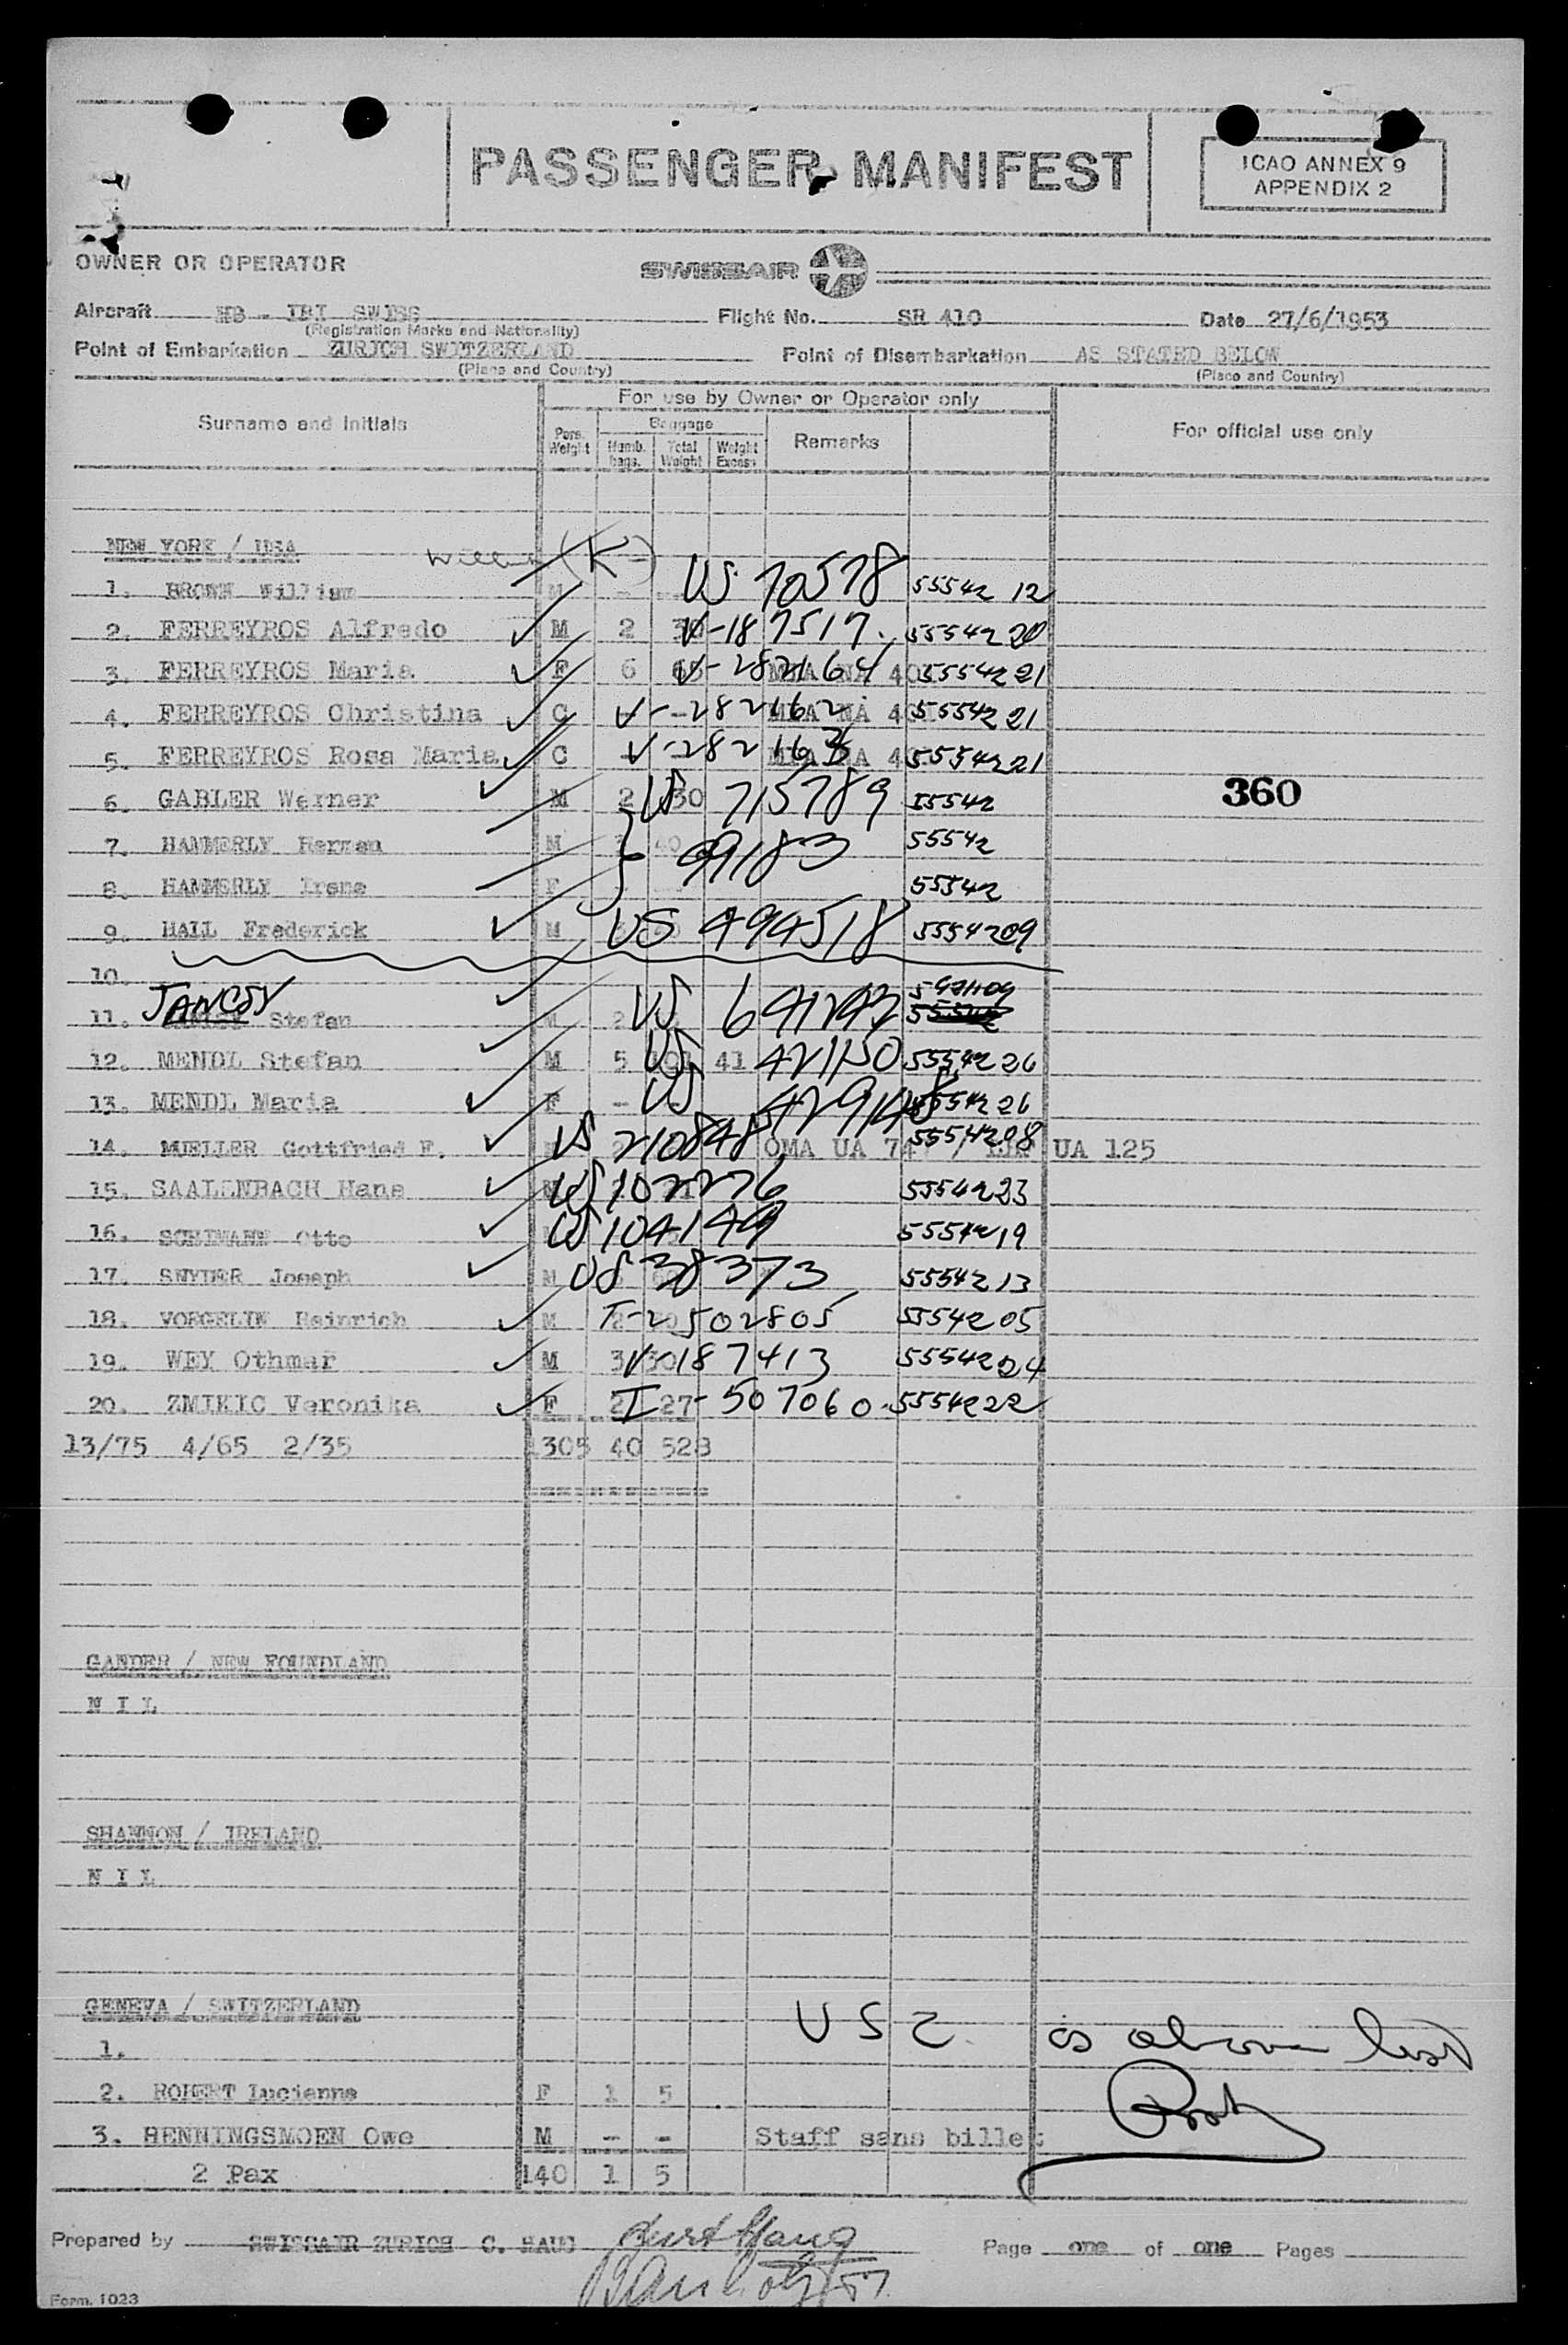 PASSENGER MANIFEST
ICAO ANNEX 9
APPENDIX 2
OWNER OR OPERATOR SWISSAIR
Aircraft HB - IBI SWISS Flight No. SR 410 Date 27/6/1953
(Registration Marks and Nationality)
Point of Embarkation ZURICH SWITZERLAND Point of Disembarkation AS STATED BELOW
(Place and Country) (Place and Country)
For use by Owner or Operator only
Surname and Initials Pers. Weight Baggage Numb. bags. Total Weight Weight Excess Remarks For official use only
NEW YORK / USA (K)
1. BROWN William M US 70578 55542 12
2. FERREYROS Alfredo M 2 30 V-187517. 55542 20
3. FERREYROS Maria F 6 V-282164 MIA NA 55542 21
4. FERREYROS Christina C - - V-282162 MIA NA 55542 21
5. FERREYROS Rosa Maria C V-282163 MIA NA 55542 21
6. GABLER Werner M 2 30 US 715789 55542
360
7. HAMMERLY Herman M 40 99183 55542
8. HAMMERLY Irene F 55542
9. HALL Frederick M US 494518 5554209
10.
11. JANCSY Stefan M 2 US
12. MENDL Stefan M 5 101 41 US 421150 55542 26
13. MENDL Maria F - US 55542 26
14. MUELLER Gottfried F. US 210848 OMA UA UA 125 5554208
15. SAALENBACH Hans US 102276 5554223
16. Otto US 104149 5554219
17. SNYDER Joseph M US 38373 5554213
18. VOEGELIN Heinrich M 2 T-2502805 5554205
19. WEY Othmar M 3 30 V-187413 5554224
20. ZMIKIC Veronika F 2 27 I-507060 5554222
13/75 4/65 2/35 1305 40 528
GANDER / NEW FOUNDLAND
N I L
SHANNON / IRELAND
N I L
GENEVA / SWITZERLAND
USC as above list
1.
2. ROBERT Lucienne F 1 5
3. HENNINGSMOEN Owe M - - Staff sans billet
2 Pax 140 1 5
Prepared by SWISSAIR ZURICH C. HAUG Page one of one Pages
Form. 1023